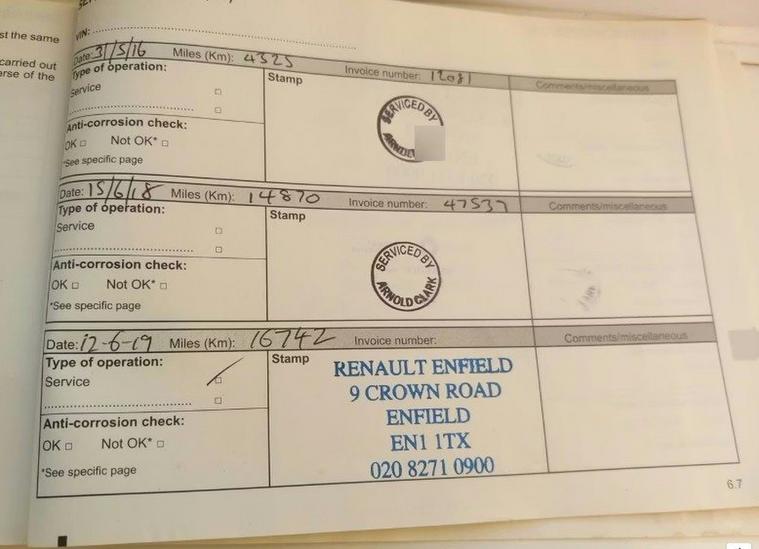 st the same
carried out
erse of the
VIN:
Date: 31/5/16 Miles (Km): 4325 Invoice number: 12081 Comments/miscellaneous
Type of operation:
Service
Stamp
SERVICED BY
Anti-corrosion check:
OK □ Not OK* □
*See specific page
Date: 15/6/18 Miles (Km): 14870 Invoice number: 47537 Comments/miscellaneous
Type of operation:
Service
Stamp
SERVICED BY
ARNOLD CLARK
Anti-corrosion check:
OK □ Not OK* □
*See specific page
Date: 12-6-19 Miles (Km): 16742 Invoice number: Comments/miscellaneous
Type of operation:
Service
Stamp
RENAULT ENFIELD
9 CROWN ROAD
ENFIELD
EN1 1TX
020 8271 0900
Anti-corrosion check:
OK □ Not OK* □
*See specific page
6.7